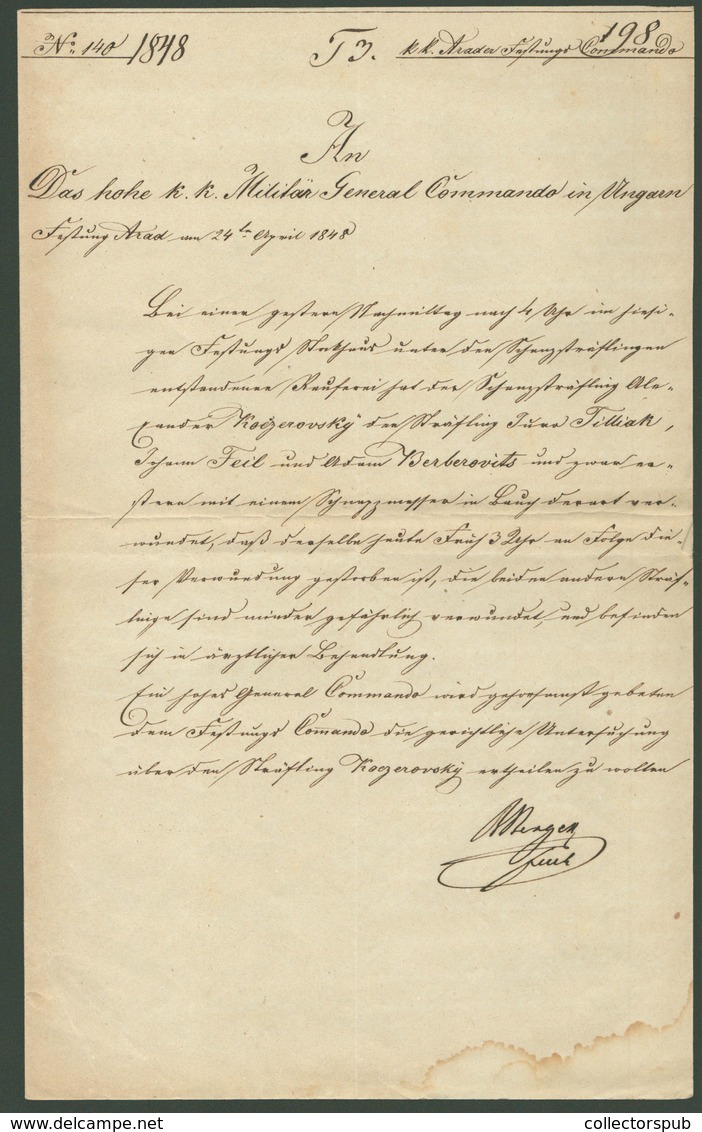 No. 140 1848 T3. 198
k.k. Arader Festungs Commando
An
Das hohe k. k. Militär General Commando in Ungarn
Festung Arad am 24ten April 1848
Bei einer gestern Nachmittag nach 4 Uhr im hiesi-
gen Festungs Stokhaus unter den Schanzsträflingen
entstandenen Rauferei hat der Schanzsträfling Ale-
xander Koczerovsky den Sträfling Juro Tilliak,
Johann Feil und Adam Berberovits und zwar er-
stern mit einem Schnappmesser in Bauch derart ver-
wundet, daß derselbe heute Früh 3 Uhr an Folge die-
ser Verwundung gestorben ist, die beiden andern Sträf-
linge sind minder gefährlich verwundet, und befinden
sich in ärztlicher Behandlung.
Ein hohes General Commando wird gehorsamst gebeten
dem Festungs Comando die gerichtliche Untersuchung
über den Sträfling Koczerovsky ertheilen zu wollen
collectorspub